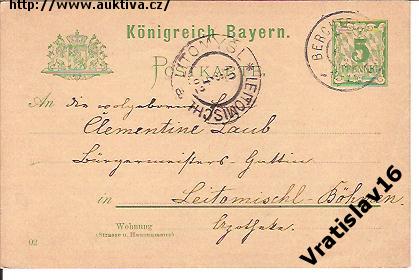 http://www.auktiva.cz/
Königreich Bayern.
POSTKARTE
LITOMYŠL * LEITOMISCHL
5
PFENNIG
An die wolgeborene
Clementine Laub
Bürgermeisters-Gattin
in Leitomischl-Böhmen
Apotheke.
Wohnung
(Strasse u. Hausnummer)
02
Vratislav16